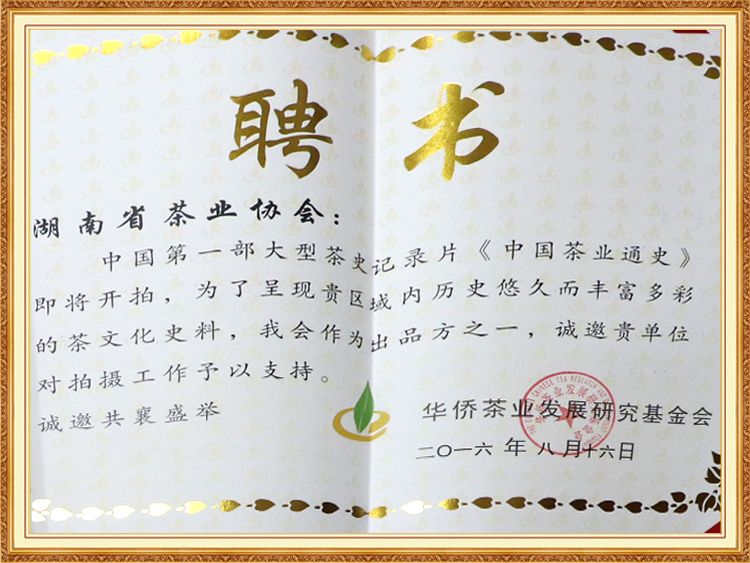 聘书
湖南省茶业协会：
中国第一部大型茶史记录片《中国茶业通史》
即将开拍，为了呈现贵区域内历史悠久而丰富多彩
的茶文化史料，我会作为出品方之一，诚邀贵单位
对拍摄工作予以支持。
诚邀共襄盛举
华侨茶业发展研究基金会
二〇一六年八月十六日